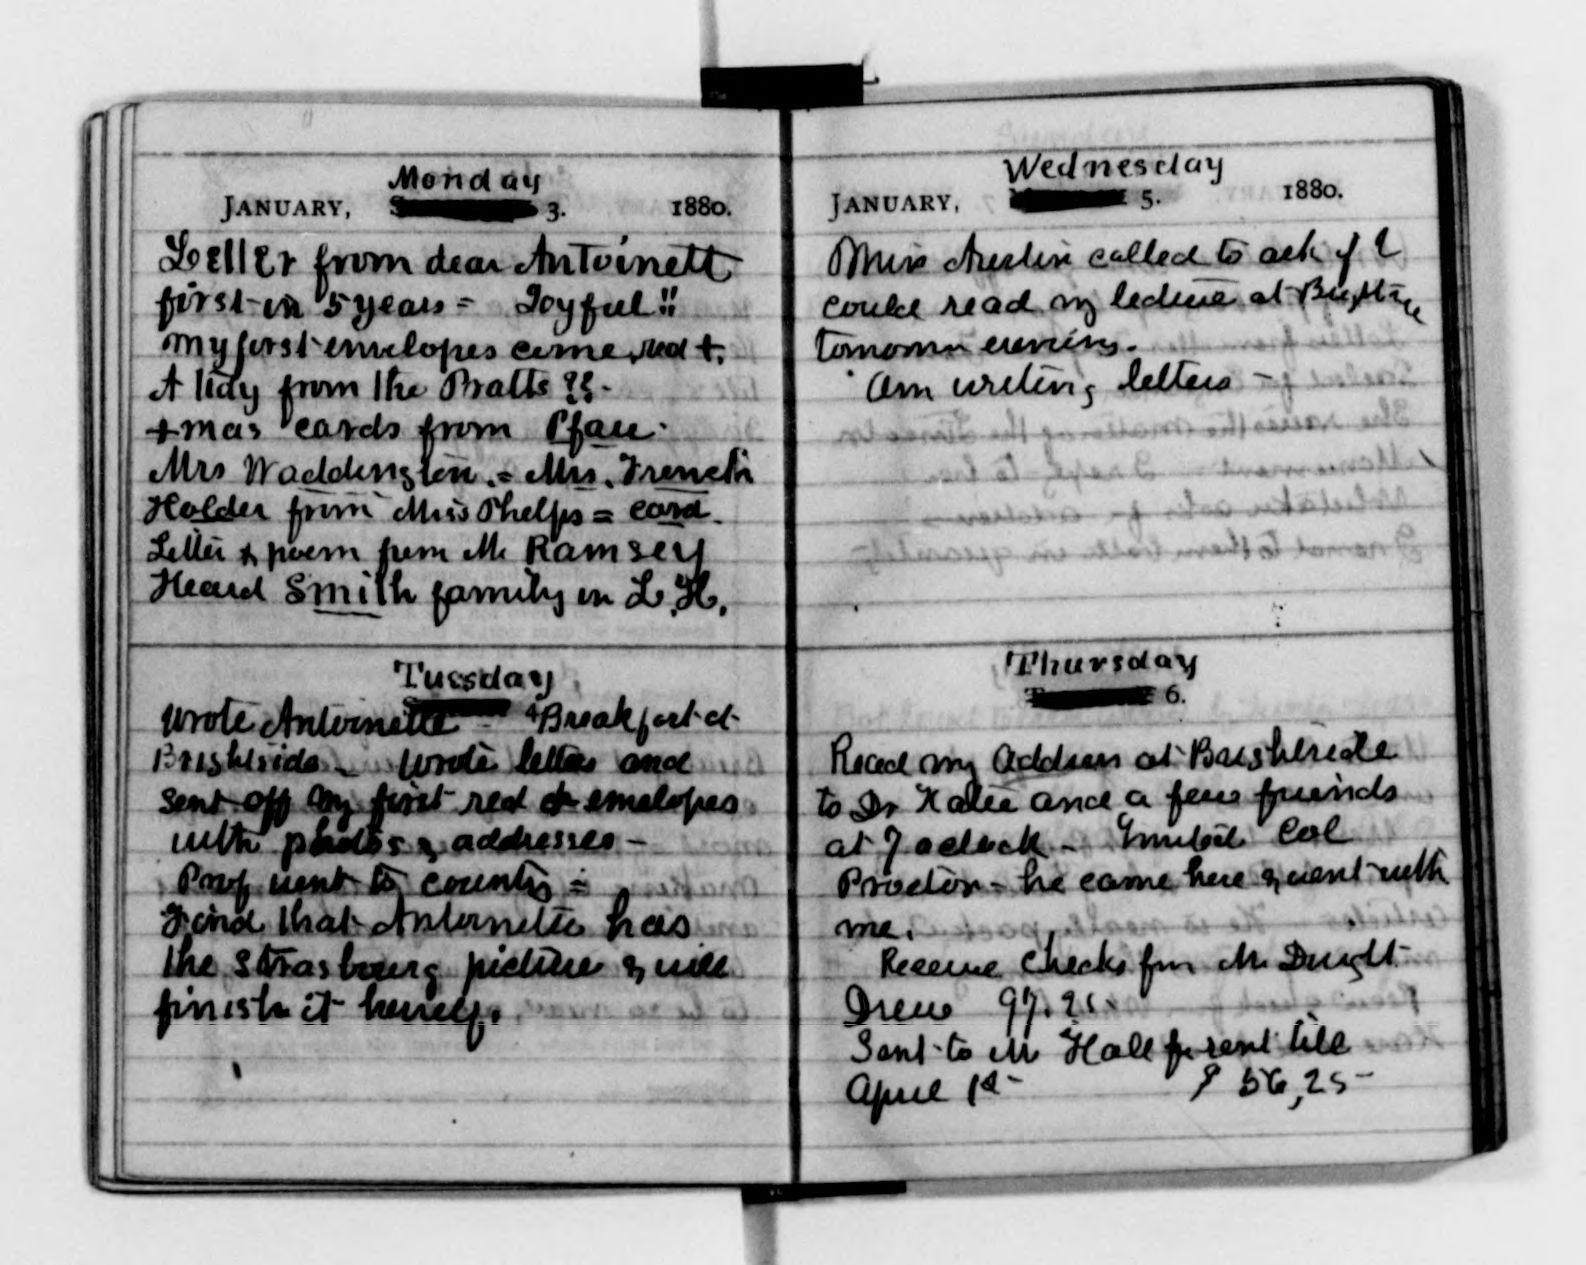 Monday
JANUARY, 3. 1880.
Letter from dear Antoinette
first in 5 years = Joyful!!
My first envelopes came, red +.
A tidy from the Pratts ??-
+mas cards from Pfau.
Mrs Waddington. = Mrs. French
Holder from Miss Phelps = card.
Letter & poem from Mr Ramsey
Heard Smith family in L. H.
Tuesday
Wrote Antoinette - Breakfast at
Brightside - Wrote letters and
sent off my first red + envelopes
with photos & addresses -
Prof went to country =
Find that Antoinette has
the Strasbourg picture & will
finish it herself.
Wednesday
JANUARY, 5. 1880.
Miss Austin called to ask if I
could read my lecture at
tomorrow evening.
Am writing letters -
Thursday
6.
Read my address at Brightside
to Dr Hale and a few friends
at 7 oclock - Invited Col
Proctor - he came here & went with
me.
Receive checks from Mr Dwight
Drew 97.25
Sent to Mr Hall for rent till
April 1st $ 56,25